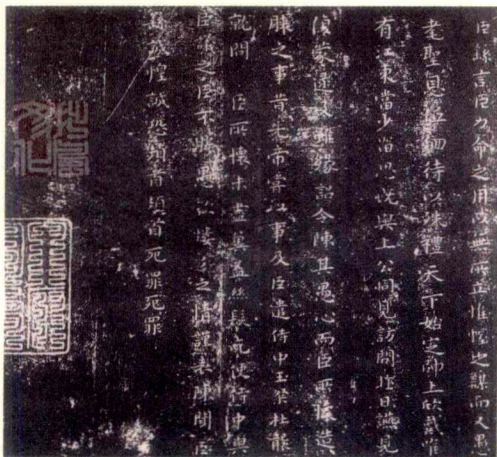 臣繇言臣力命之用以無所立惟幄之謀而又愚
耄聖恩低徊待以殊禮天下始定師土欣戴唯
有江東當少留思既與上公同見訪問昨日疏見
復蒙逮及雖緣詔令陳其愚心而臣所懷造
膝之事昔先帝嘗以事及臣遣侍中王粲杜襲
就問臣所懷未盡奚益絲髮乞使侍中與
臣議之臣不勝愚款悽悽之情謹表陳聞臣
繇誠惶誠恐頓首頓首死罪死罪